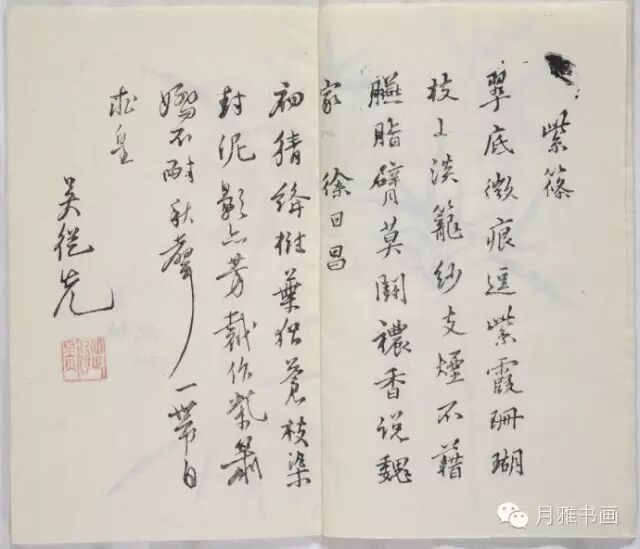 紫篠
翠底微痕逗紫霞珊瑚
枝上淡籠紗支煙不藉
臙脂臂莫鬪襛香說魏
家 徐日昌
初猜絳樹葉猶蒼枝染
封泥影亦芳裁作紫簫
不耐秋聲一日
求皇
吴從先
月雅书画